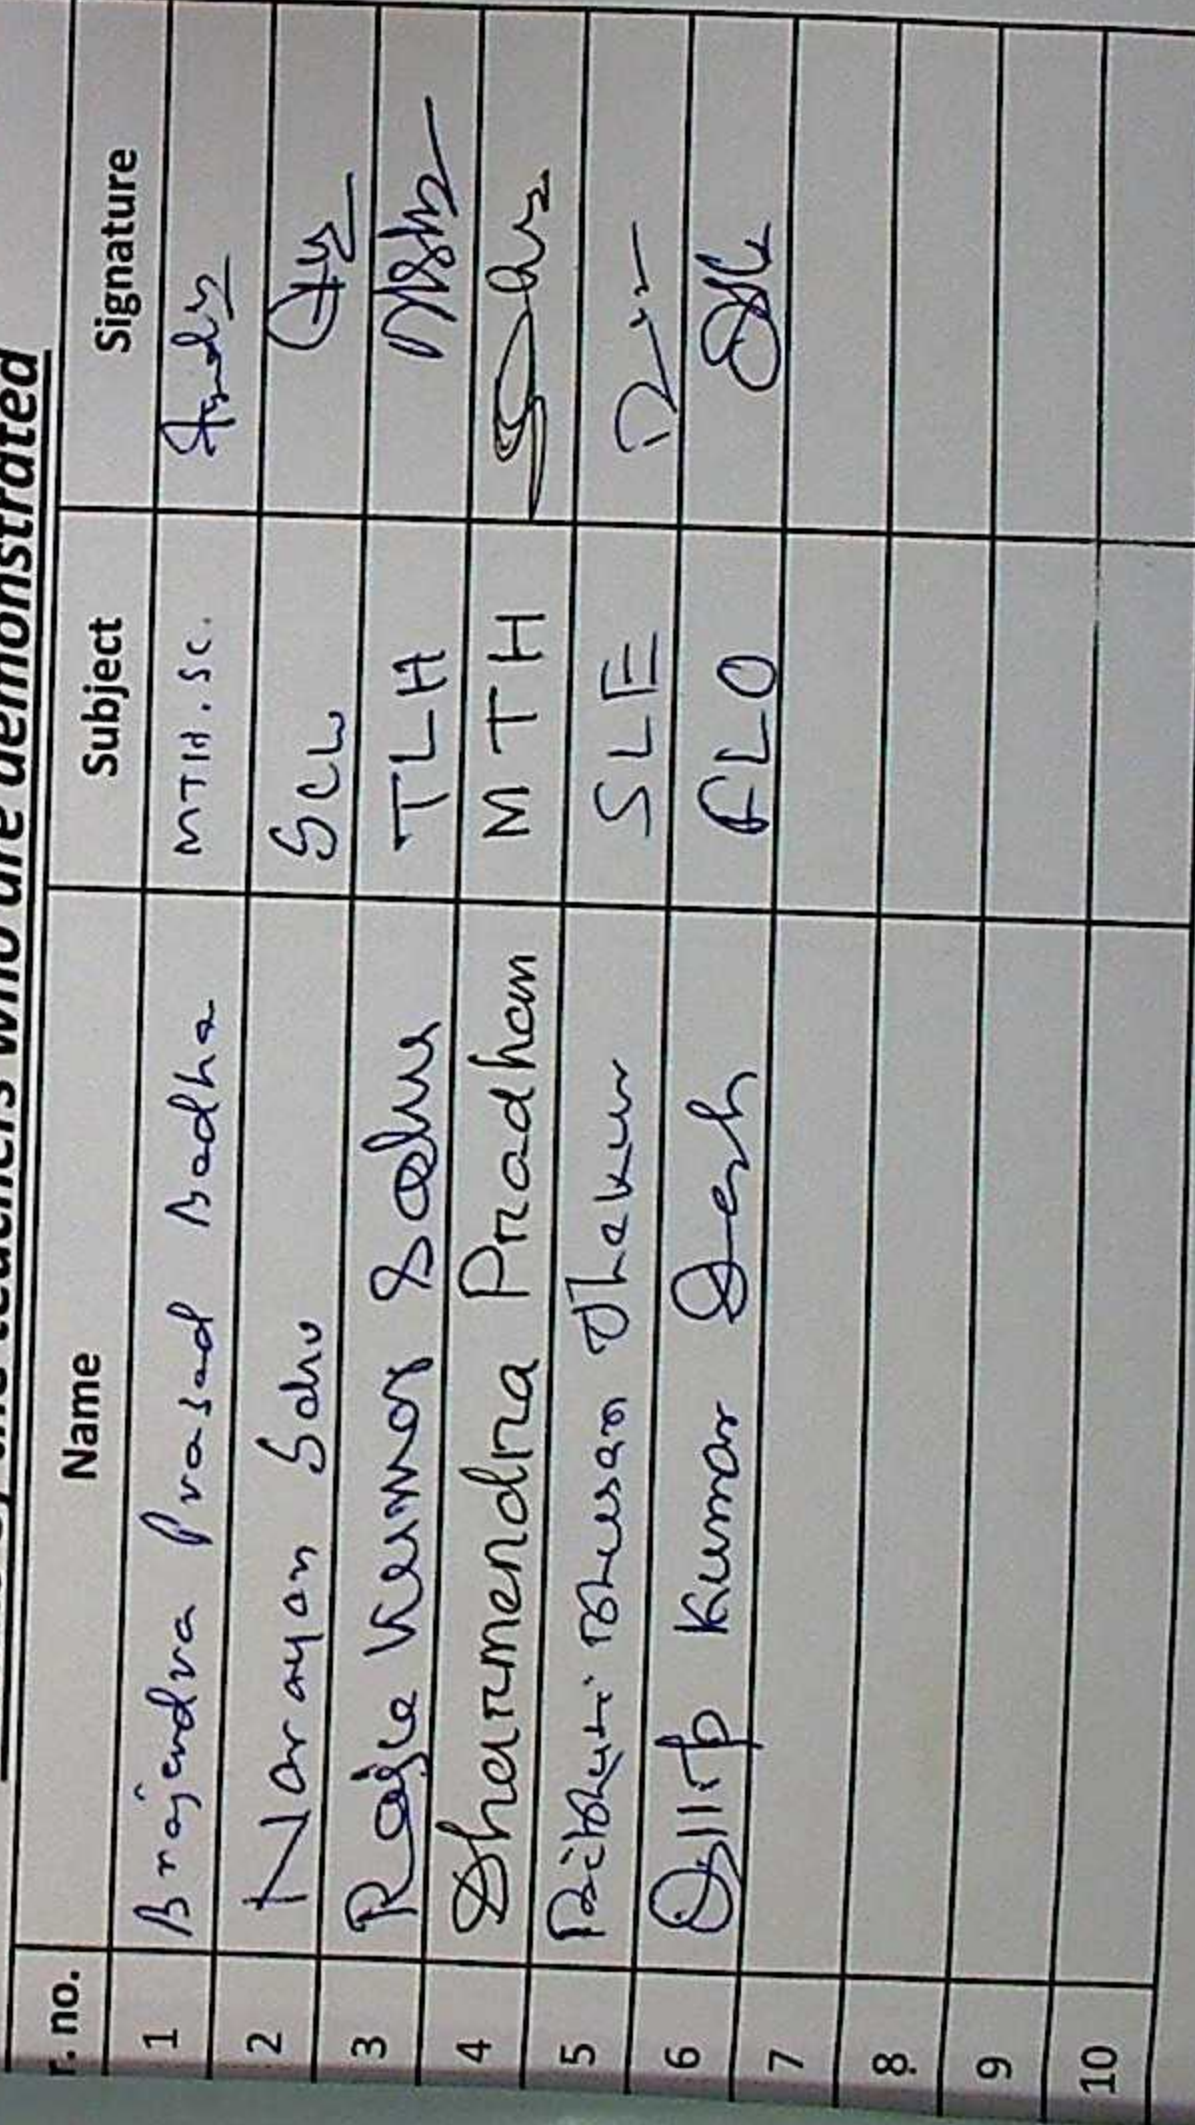 the teachers who are demonstrated
r. no. Name Subject Signature
1 Brajendra Prasad Badha MTH.SC.
2 Narayan Sahu SCW
3 Kumar Sahu TLH
4 Dharmendra Pradhan MTH
5 Bibhuti Bhusan Thakur SLE
6 Dillip Kumar Dash FLO
7
8
9
10